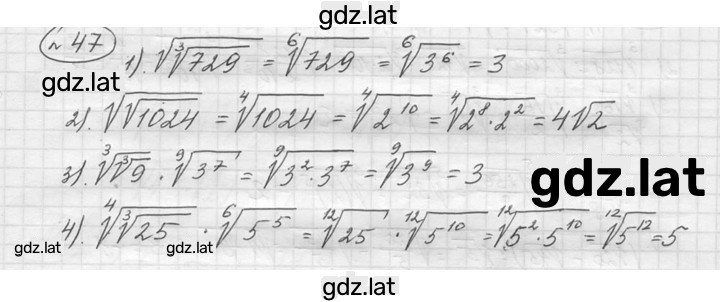 gdz.lat
№ 47
1). √∛729 = ⁶√729 = ⁶√3⁶ = 3
gdz.lat
2). √√1024 = ⁴√1024 = ⁴√2¹⁰ = ⁴√2⁸·2² = 4√2
3). ∛∛9 · ⁹√3⁷ = ⁹√3²·3⁷ = ⁹√3⁹ = 3
gdz.lat
4). ⁴√∛25 · ⁶√5⁵ = ¹²√25 · ¹²√5¹⁰ = ¹²√5²·5¹⁰ = ¹²√5¹² = 5
gdz.lat gdz.lat
gdz.lat